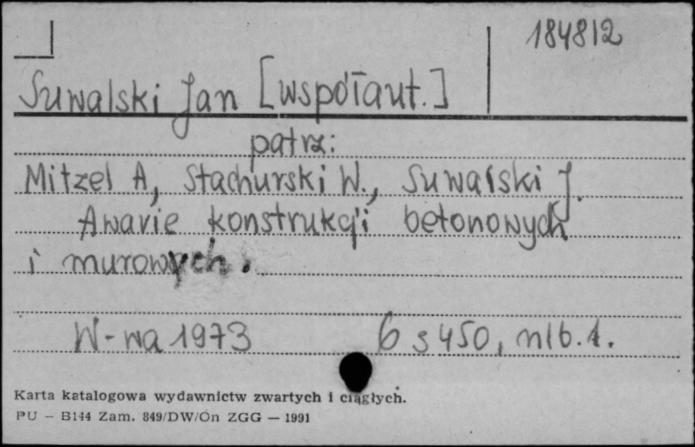 184812
Suwalski Jan [współaut.]
patrz:
Mitzel A., Stachurski W., Suwalski J.
Awarie konstrukcji betonowych
i murowych.
W-wa 1973 6 s 450, nlb. 1.
Karta katalogowa wydawnictw zwartych i ciągłych.
PU — B144 Zam. 849/DW/On ZGG — 1991